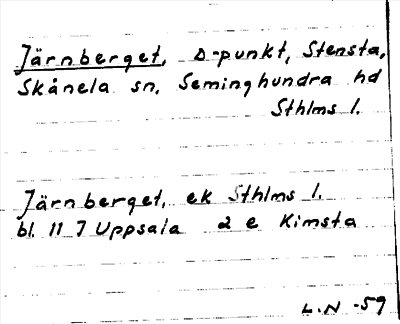 Järnberget, D-punkt, Stensta,
Skånela sn. Seminghundra hd
Sthlms l.
Järnberget, ek Sthlms l.
bl. 11 7 Uppsala 2 e Kimsta
L.N -59